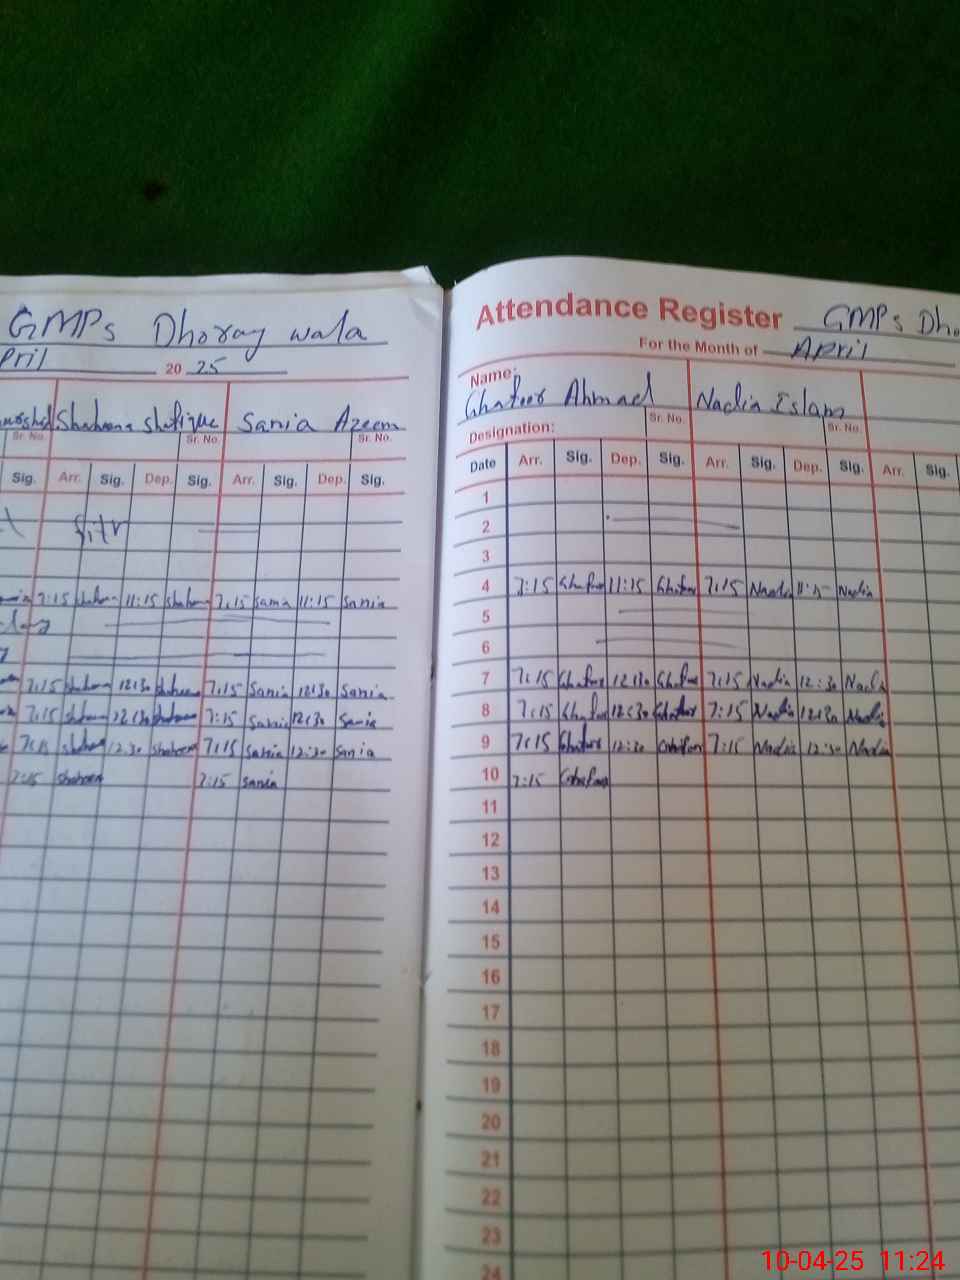 GMPs Dhoray wala
pril 20 25
Shaheena Shafique Sania Azeem
Sr. No. Sr. No. Sr. No.
Sig. Arr. Sig. Dep. Sig. Arr. Sig. Dep. Sig.
fitr
7:15 11:15 7:15 Sania 11:15 Sania
7:15 12:30 7:15 Sania 12:30 Sania
7:15 12:30 7:15 Sania 12:30 Sania
7:15 12:30 7:15 Sania 12:30 Sania
7:15 7:15 Sania
Attendance Register GMPs Dho
For the Month of April
Name:
Ghafoor Ahmad Nadia Islam
Sr. No. Sr. No.
Designation:
Date Arr. Sig. Dep. Sig. Arr. Sig. Dep. Sig. Arr. Sig.
1
2
3
4 7:15 11:15 7:15 Nadia 11:15 Nadia
5
6
7 7:15 12:30 7:15 Nadia 12:30 Nadia
8 7:15 12:30 7:15 Nadia 12:30 Nadia
9 7:15 12:30 7:15 Nadia 12:30 Nadia
10 7:15
11
12
13
14
15
16
17
18
19
20
21
22
23
24
10-04-25 11:24